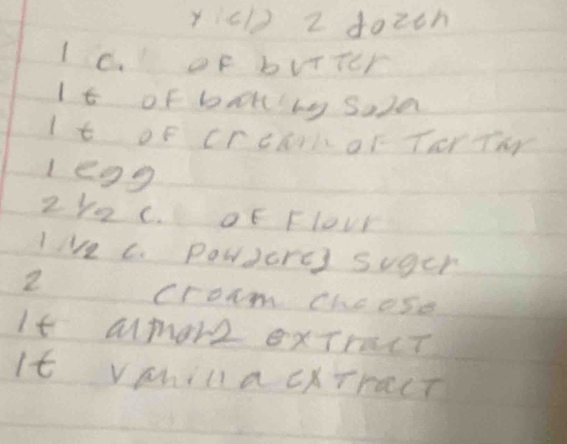 Yield 2 dozen
1 c. of butter
1 t of baking soda
1 t of cream of Tar Tar
1 egg
2 1/2 c. of Flour
1 1/2 c. powdered suger
2 cream cheese
1t almond extract
1t vanilla extract